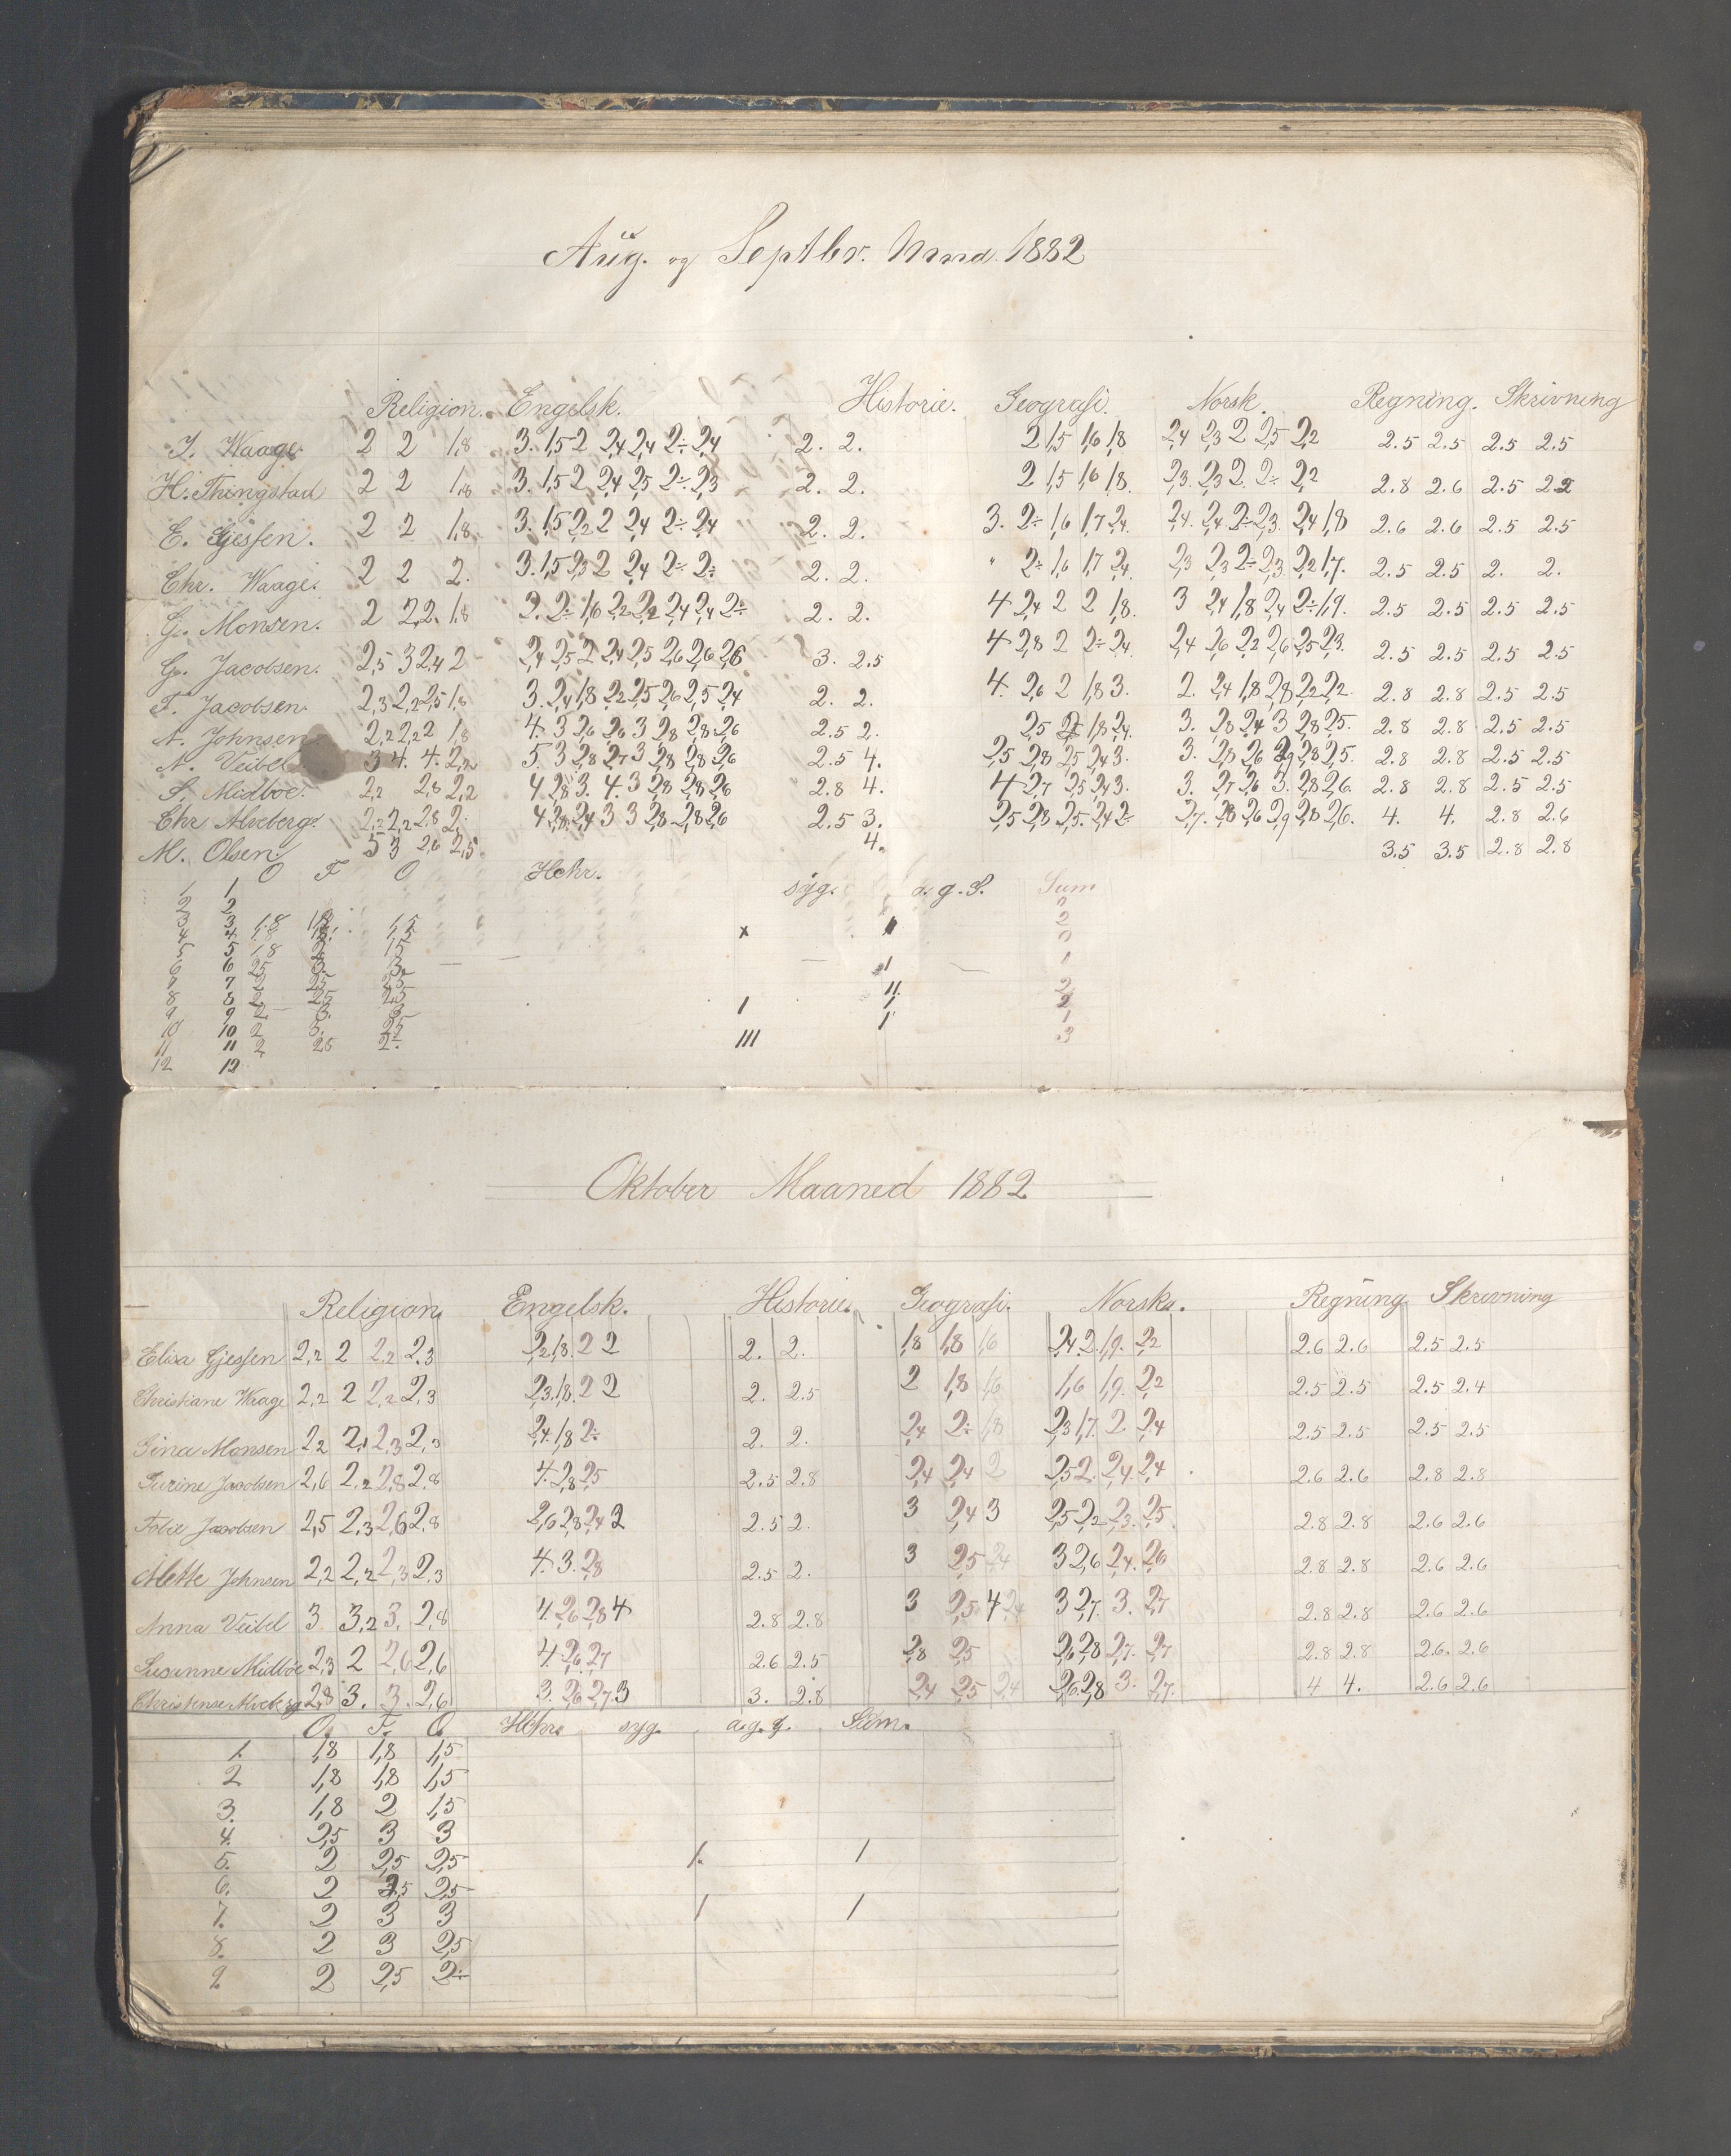 Aug. og Septbr. Mnd. 1882
Religion. Engelsk. Historie. Geografi. Norsk. Regning. Skrivning
J. Waage. 2 2 1,8 3. 1,5 2 2,4 2,4 2÷ 2,4 2. 2. 2 1,5 1,6 1,8 2,4 2,3 2 2,5 2,2 2.5 2.5 2.5 2.5
H. Thingstad 2 2 1,8 3. 1,5 2 2,4 2,5 2÷ 2,3 2. 2. 2 1,5 1,6 1,8. 2,3. 2,3 2. 2÷ 2,2 2.8 2.6 2.5 2.2
E. Gjessen. 2 2 1,8 3. 1,5 2,2 2 2,4 2÷ 2,4 2. 2. 3. 2÷ 1,6 1,7 2,4. 2,4. 2,4 2÷ 2,3. 2,4 1,8 2.6 2.6 2.5 2.5
Chr. Waage. 2 2 2. 3. 1,5 2,3 2 2,4 2÷ 2÷ 2. 2. " 2÷ 1,6 1,7 2,4. 2,3 2,3 2÷ 2,3 2,2 1,7. 2.5 2.5 2. 2.
G. Monsen. 2 2,2. 1,8 2. 2÷ 1,6 2,2 2,2 2,4 2,4 2÷ 2. 2. 4 2,4 2 2 1,8. 3 2,4 1,8 2,4 2÷ 1,9. 2.5 2.5 2.5 2.5
G. Jacobsen. 2,5 3 2,4 2 2,4 2,5 2 2,4 2,5 2,6 2,6 2,6 3. 2.5 4 2,8 2 2÷ 2,4. 2,4 2,6 2,2 2,6 2,5 2,3. 2.5 2.5 2.5 2.5
T. Jacobsen. 2,3 2,2 2,5 1,8 3. 2,4 1,8 2,2 2,5 2,6 2,5 2,4 2. 2. 4. 2,6 2 1,8 3. 2. 2,4 1,8 2,8 2,2 2,2. 2.8 2.8 2.5 2.5
A. Johnsen 2,2 2,2 2 1,8 4. 3 2,6 2,6 3 2,8 2,8 2,6 2.5 2. 2,5 2 1,8 2,4. 3. 2,8 2,4 3 2,8 2,5. 2.8 2.8 2.5 2.5
A. Veibel 3 4. 4. 2,2 5. 3 2,8 2,7 3 2,8 2,8 2,6 2.5 4. 2,5 2,8 2,5 2,4 3. 3. 2,8 2,6 2,9 2,8 2,5. 2.8 2.8 2.5 2.5
S. Midböe. 2,2 2,8 2,2 4 2,8 3. 4. 3 2,8 2,8 2,6 2.8 4. 4 2,7 2,5 2,4 3. 3. 2,7 2,6 3. 2,8 2,6. 2.8 2.8 2.5 2.5
Chr Alveberg. 2,2 2,2 2,8 2. 4 2,8 2,4 3 3 2,8 2,8 2,6 2.5 3. 2,5 2,8 2,5. 2,4 2÷ 2,7. 2,8 2,6 2,9 2,8 2,6. 4. 4. 2.8 2.6
M. Olsen. 3 3 2,6 2,5. 4. 3.5 3.5 2.8 2.8
O F O syg. a. g. S. Sum
1 1 2
2 2 2
3 3 1,8 1,5 x 0
4 4
5 5 1,8 2 1,5 1 1
6 6 2,5 3. 3.
7 7 2 2,5 2,5 11. 2
8 8 2 2,5 2,5 1 1 2
9 9 2 3. 3 1 1
10 10 2 3. 2,5 111 3
11 11 2 2,5 2.
12 12
Oktober Maaned 1882
Religion. Engelsk. Historie. Geografi. Norska. Regning Skrivning
Elisa Gjessen 2,2 2 2,2 2,3 2,2 1,8. 2 2 2. 2. 1,8 1,8 1,6 2,4 2. 1,9. 2,2 2.6 2.6 2.5 2.5
Christiane Waage 2,2 2 2,2 2,3 2,3. 1,8. 2 2 2. 2.5 2 1,8 1,6 1,6 1,9. 2,2 2.5 2.5 2.5 2.4
Gina Monsen 2,2 2,1 2,3 2,3 2,4. 1,8 2÷ 2. 2. 2,4 2÷ 1,8 2,3 1,7. 2 2,4 2.5 2.5 2.5 2.5
Gurine Jacobsen 2,6 2,2 2,8 2,8 4. 2,8 2,5 2.5 2.8 2,4 2,4 2 2,5 2. 2,4. 2,4 2.6 2.6 2.8 2.8
Tobie Jacobsen 2,5 2,3 2,6 2,8 2,6 2,8 2,4 2 2.5 2. 3 2,4 3 2,5 2,2 2,3. 2,5 2.8 2.8 2.6 2.6
Mette Johnsen 2,2 2,2 2,3 2,3 4. 3. 2,8 2.5 2. 3 2,5 2,4 3 2,6 2,4. 2,6 2.8 2.8 2.6 2.6
Anna Veibel 3 3,2 3. 2,8 4. 2,6 2,8 4 2.8 2.8 3 2,5 4 2,4 3 2,7. 3. 2,7 2.8 2.8 2.6 2.6
Susanne Midböe 2,3 2 2,6 2,6 4. 2,6 2,7 2.6 2.5 2,8 2,5 2,6 2,8 2,7. 2,7 2.8 2.8 2.6. 2.6
Christense Alveberg 2,8 3. 3. 2,6 3. 2,6 2,7. 3 3. 2.8 2,4 2,5 2,4 2,6. 2,8 3. 2,7. 4 4. 2.6 2.6
O. F. O. syg. a. g. Sum.
1. 1,8 1,8 1,5
2 1,8 1,8 1,5
3. 1,8 2 1,5
4. 2,5 3 3
5. 2 2,5 2,5 1. 1
6. 2 2,5 2,5
7. 2 3 3 1 1
8. 2 3 2,5
9. 2 2,5 2÷